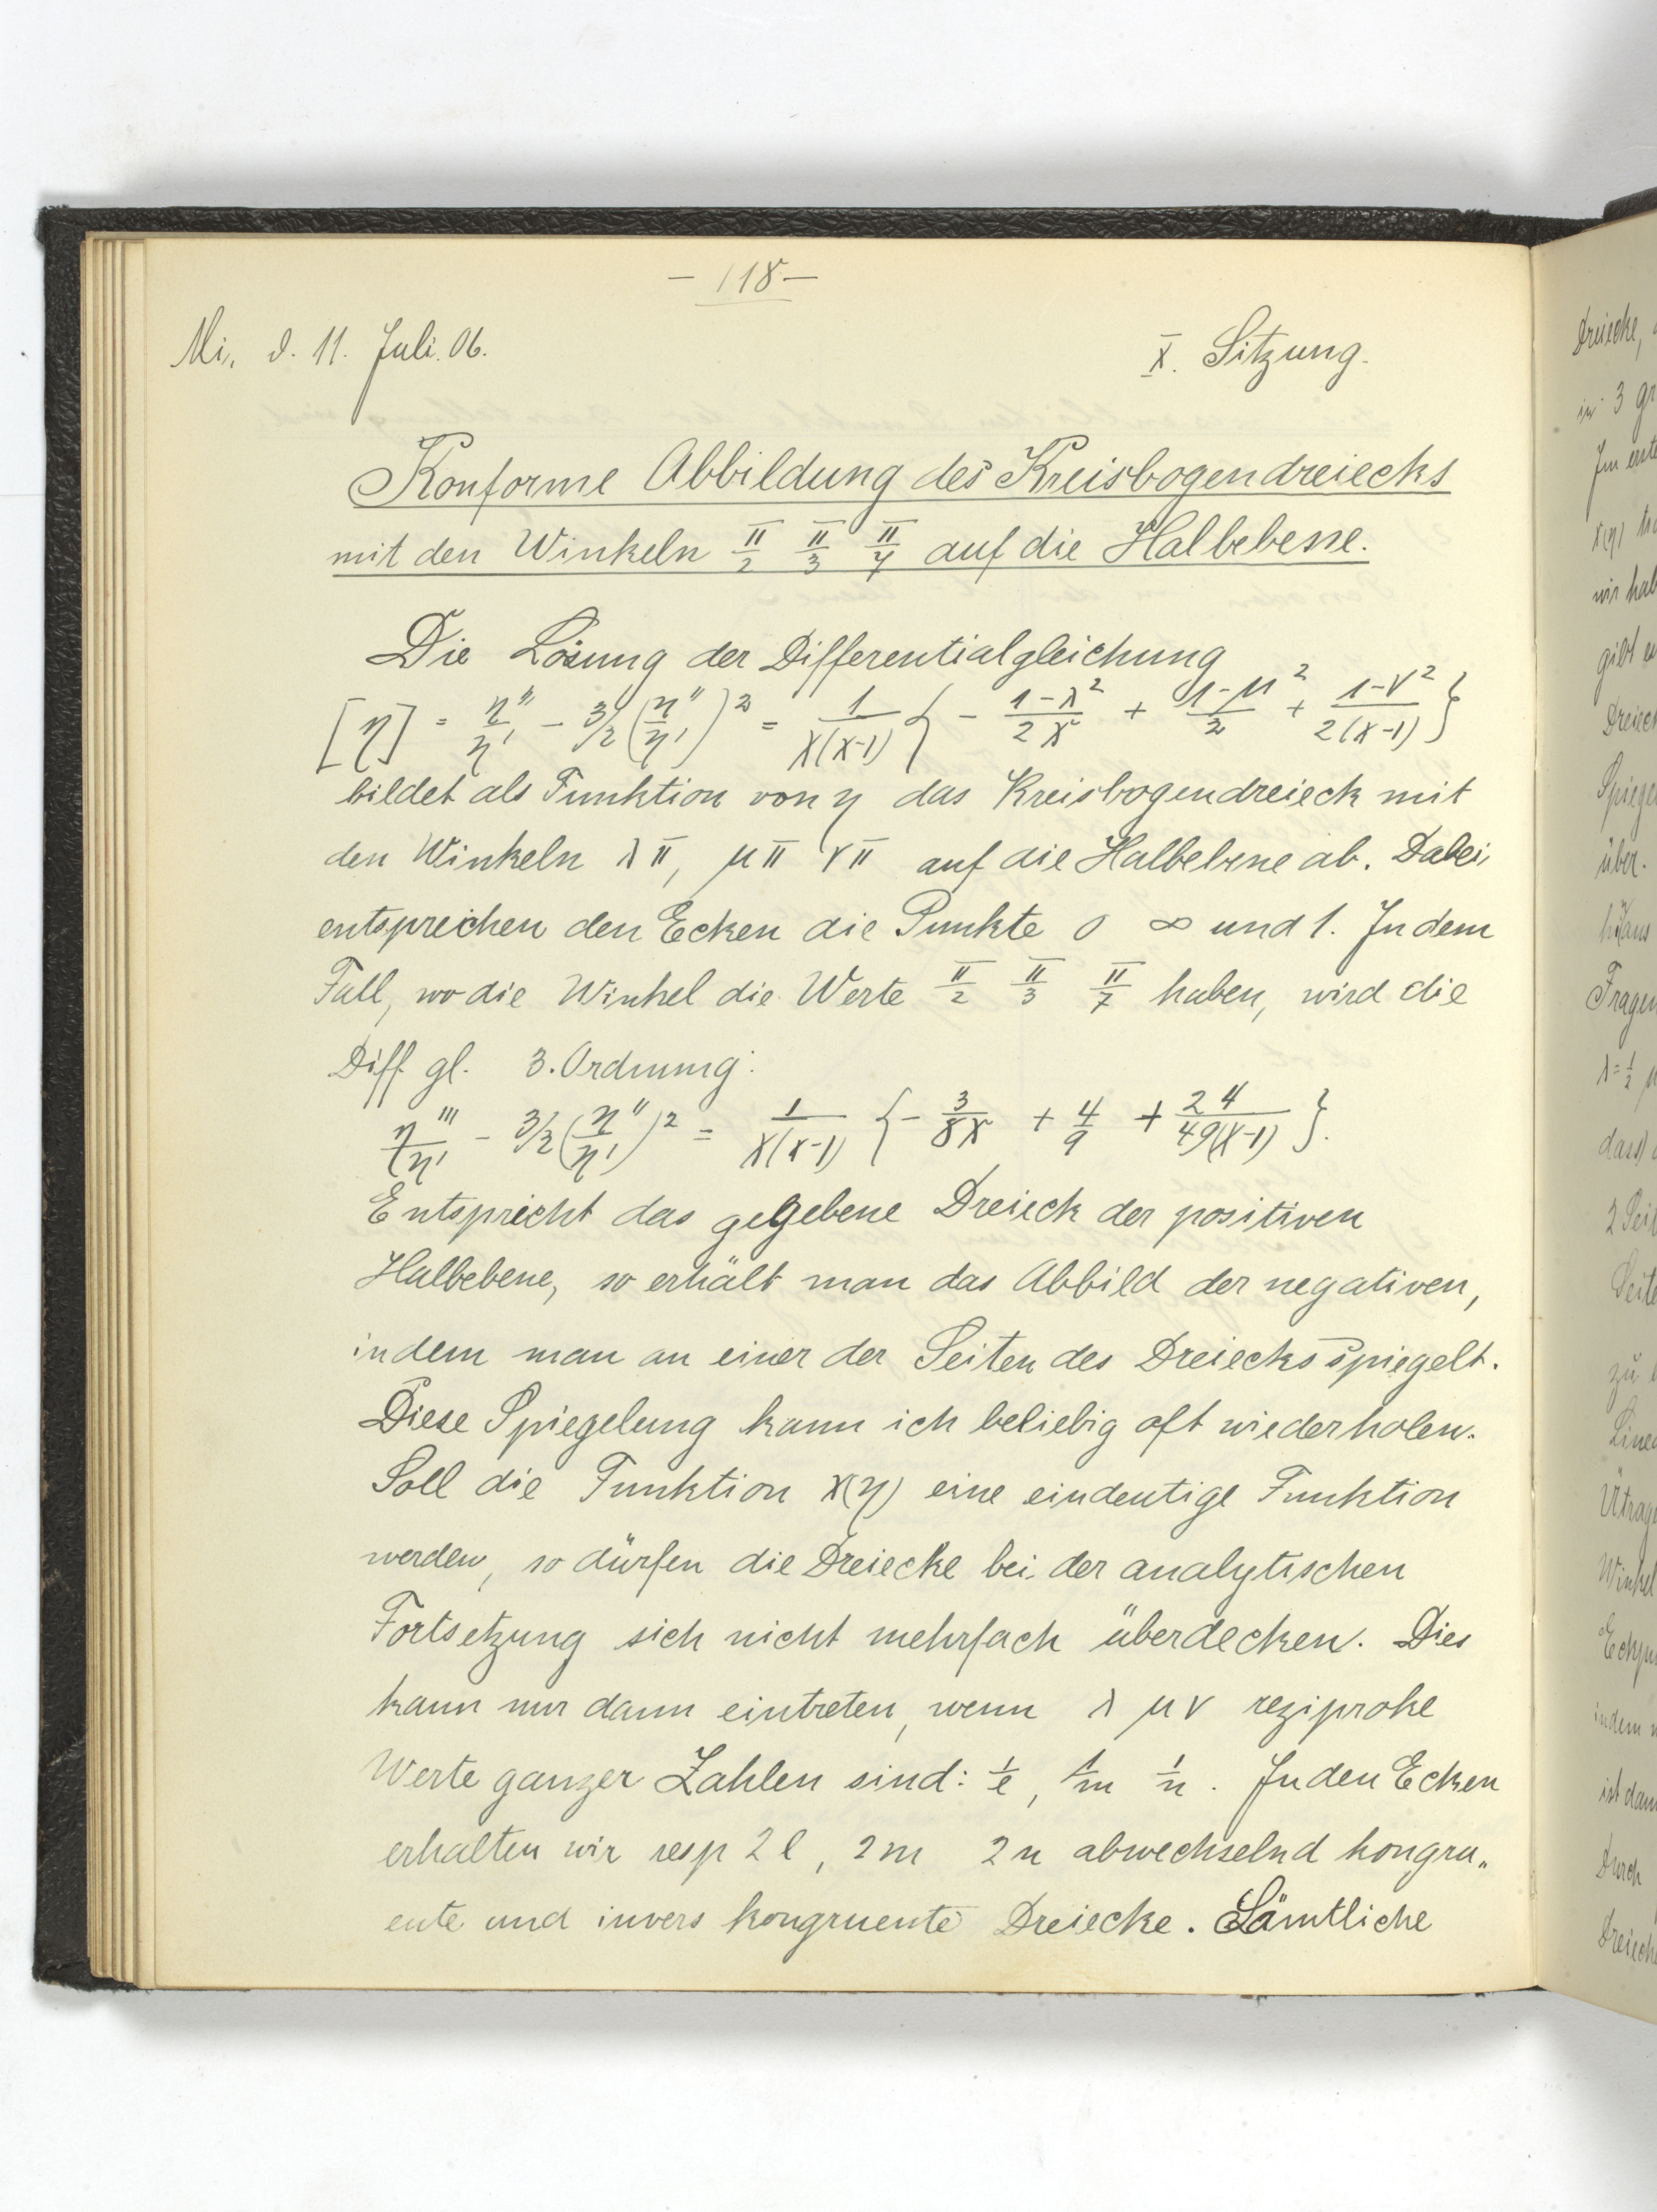 – 118 –
Mi. d. 11. Juli. 06.
X. Sitzung.
Konforme Abbildung des Kreisbogendreiecks
mit den Winkeln π/2 π/3 π/7 auf die Halbebene.
Die Lösung der Differentialgleichung
[η] = η''/η' – 3/2 (η''/η')² = 1/x(x-1) { – 1-λ²/2x + 1-μ²/2 + 1-ν²/2(x-1) }
bildet als Funktion von η das Kreisbogendreieck mit
den Winkeln λπ, μπ νπ auf die Halbebene ab. Dabei
entsprechen den Ecken die Punkte 0 ∞ und 1. In dem
Fall, wo die Winkel die Werte π/2 π/3 π/7 haben, wird die
Diff. gl. 3. Ordnung:
η'''/η' – 3/2 (η''/η')² = 1/x(x-1) { – 3/8x + 4/9 + 24/49(x-1) }.
Entspricht das gegebene Dreieck der positiven
Halbebene, so erhält man das Abbild der negativen,
indem man an einer der Seiten des Dreiecks spiegelt.
Diese Spiegelung kann ich beliebig oft wiederholen.
Soll die Funktion x(η) eine eindeutige Funktion
werden, so dürfen die Dreiecke bei der analytischen
Fortsetzung sich nicht mehrfach überdecken. Dies
kann nur dann eintreten, wenn λ μ ν reziproke
Werte ganzer Zahlen sind: 1/l, 1/m 1/n. In den Ecken
erhalten wir resp 2l, 2m 2n abwechselnd kongru„
ente und invers kongruente Dreiecke. Sämtliche
Dreiecke,
in 3
x(η)
wir
gibt
über.
Fragen
λ = 1/2
dass
2
zu
Winkel
indem
ist
Durch